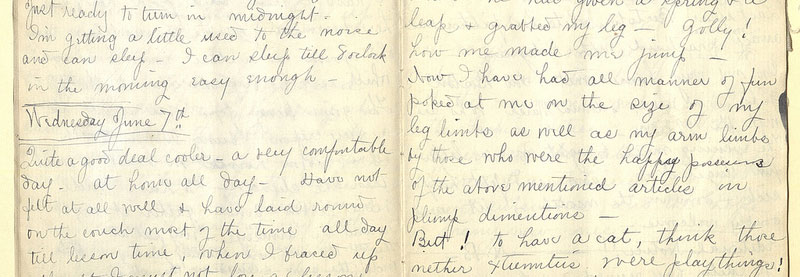 just ready to turn in midnight -
I'm getting a little used to the noise
and can sleep - I can sleep till 8 oclock
in the morning easy enough -
Wednesday June 7th
Quite a good deal cooler - a very comfortable
day - at home all day - Have not
felt at all well & have laid round
on the couch most of the time all day
till lesson time, when I braced up
not lose a lesson
had given a spring & a
leap & grabbed my leg - Golly!
how me made me jump -
Now I have had all manner of fun
poked at me on the size of my
leg limbs as well as my arm limbs
by those who were the happy possessors
of the above mentioned articles in
plump dimentions -
But! to have a cat, think those
nether extremities were playthings!